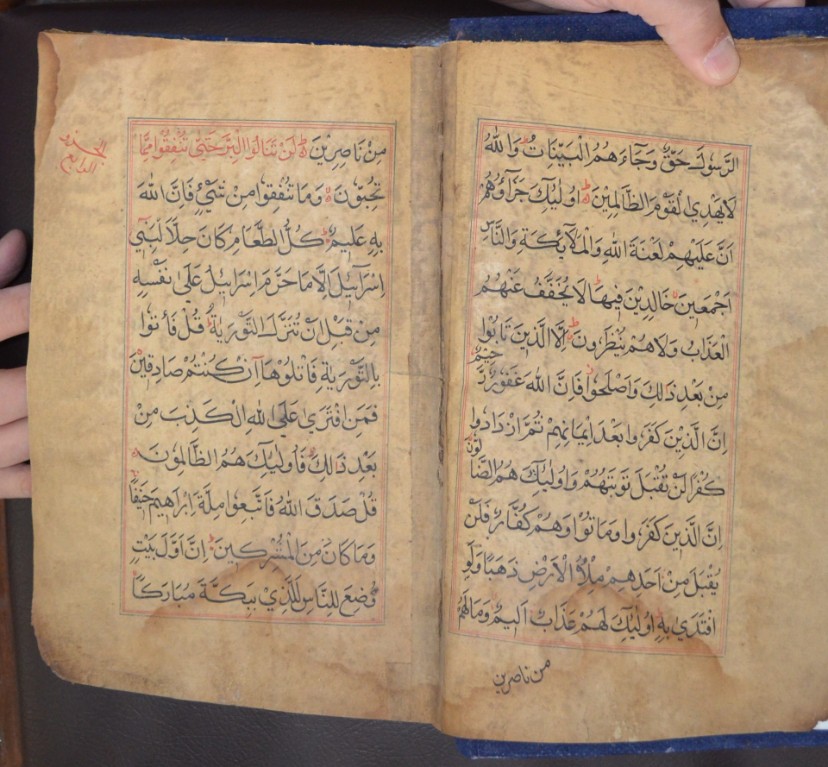 الرَّسُولَ حَقٌّ وَجَاءَهُمُ الْبَيِّنَاتُ وَاللّٰهُ
لَا يَهْدِي الْقَوْمَ الظَّالِمِينَ اُولٰئِكَ جَزَآؤُهُمْ
اَنَّ عَلَيْهِمْ لَعْنَةَ اللّٰهِ وَالْمَلَآئِكَةِ وَالنَّاسِ
اَجْمَعِينَ خَالِدِينَ فِيهَا لَا يُخَفَّفُ عَنْهُمُ
الْعَذَابُ وَلَا هُمْ يُنْظَرُونَ اِلَّا الَّذِينَ تَابُوا
مِنْ بَعْدِ ذٰلِكَ وَاَصْلَحُوا فَاِنَّ اللّٰهَ غَفُورٌ رَّحِيمٌ
اِنَّ الَّذِينَ كَفَرُوا بَعْدَ اِيمَانِهِمْ ثُمَّ ازْدَادُوا
كُفْرًا لَنْ تُقْبَلَ تَوْبَتُهُمْ وَاُولٰئِكَ هُمُ الضَّالُّونَ
اِنَّ الَّذِينَ كَفَرُوا وَمَاتُوا وَهُمْ كُفَّارٌ فَلَنْ
يُقْبَلَ مِنْ اَحَدِهِمْ مِلْأُ الْاَرْضِ ذَهَبًا وَلَوِ
افْتَدَىٰ بِهِ اُولٰئِكَ لَهُمْ عَذَابٌ اَلِيمٌ وَمَا لَهُمْ
من ناصرين
مِنْ نَاصِرِينَ لَنْ تَنَالُوا الْبِرَّ حَتّٰى تُنْفِقُوا مِمَّا
الجزو
الرابع
تُحِبُّونَ وَمَا تُنْفِقُوا مِنْ شَيْءٍ فَاِنَّ اللّٰهَ
بِهِ عَلِيمٌ كُلُّ الطَّعَامِ كَانَ حِلًّا لِبَنِي
اِسْرَآئِيلَ اِلَّا مَا حَرَّمَ اِسْرَآئِيلُ عَلٰى نَفْسِهِ
مِنْ قَبْلِ اَنْ تُنَزَّلَ التَّوْرٰيةُ قُلْ فَأْتُوا
بِالتَّوْرٰيةِ فَاتْلُوهَا اِنْ كُنْتُمْ صَادِقِينَ
فَمَنِ افْتَرٰى عَلَى اللّٰهِ الْكَذِبَ مِنْ
بَعْدِ ذٰلِكَ فَاُولٰئِكَ هُمُ الظَّالِمُونَ
قُلْ صَدَقَ اللّٰهُ فَاتَّبِعُوا مِلَّةَ اِبْرَاهِيمَ حَنِيفًا
وَمَا كَانَ مِنَ الْمُشْرِكِينَ اِنَّ اَوَّلَ بَيْتٍ
وُضِعَ لِلنَّاسِ لَلَّذِي بِبَكَّةَ مُبَارَكًا